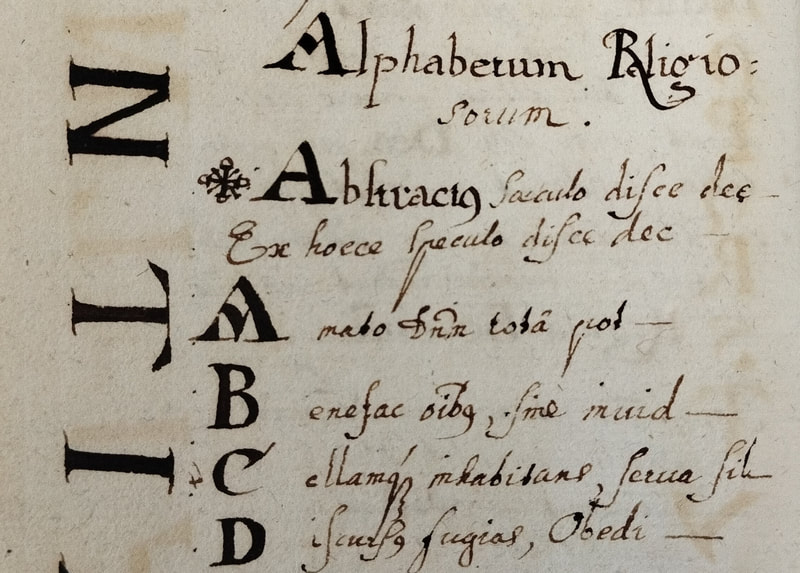 Alphabetum Religio:
sorum.
Abstractus sæculo disce dec
Ex hocce speculo disce dec
A mato Dnm totā pot
B enefac oibus, sine inuid
C ellamque inhabitans, serua sil
D iscursus fugias, Obedi
N
T
I